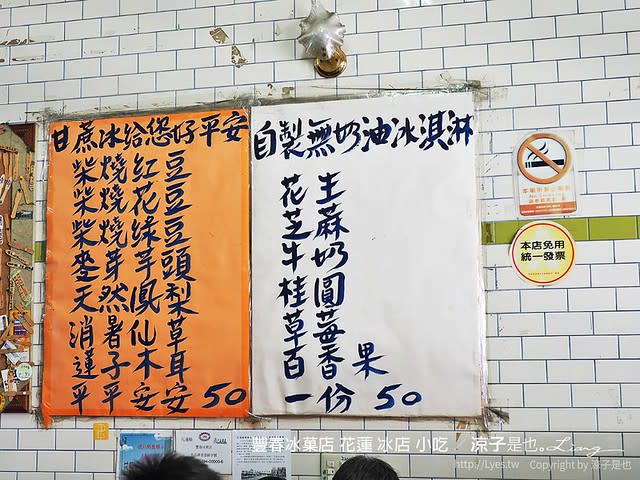 甘蔗冰給您好平安
柴燒紅豆
柴燒花豆
柴燒綠豆
麥芽芋頭
天然鳳梨
消暑仙草
蓮子木耳
平平安安 50
自製無奶油冰淇淋
花生
芝蔴
牛奶
桂圓
草莓
百香果
一份 50
本店免用
統一發票
豐春冰菓店 花蓮 冰店 小吃 涼子是也。Ling
http://Lyes.tw Copyright by 涼子是也